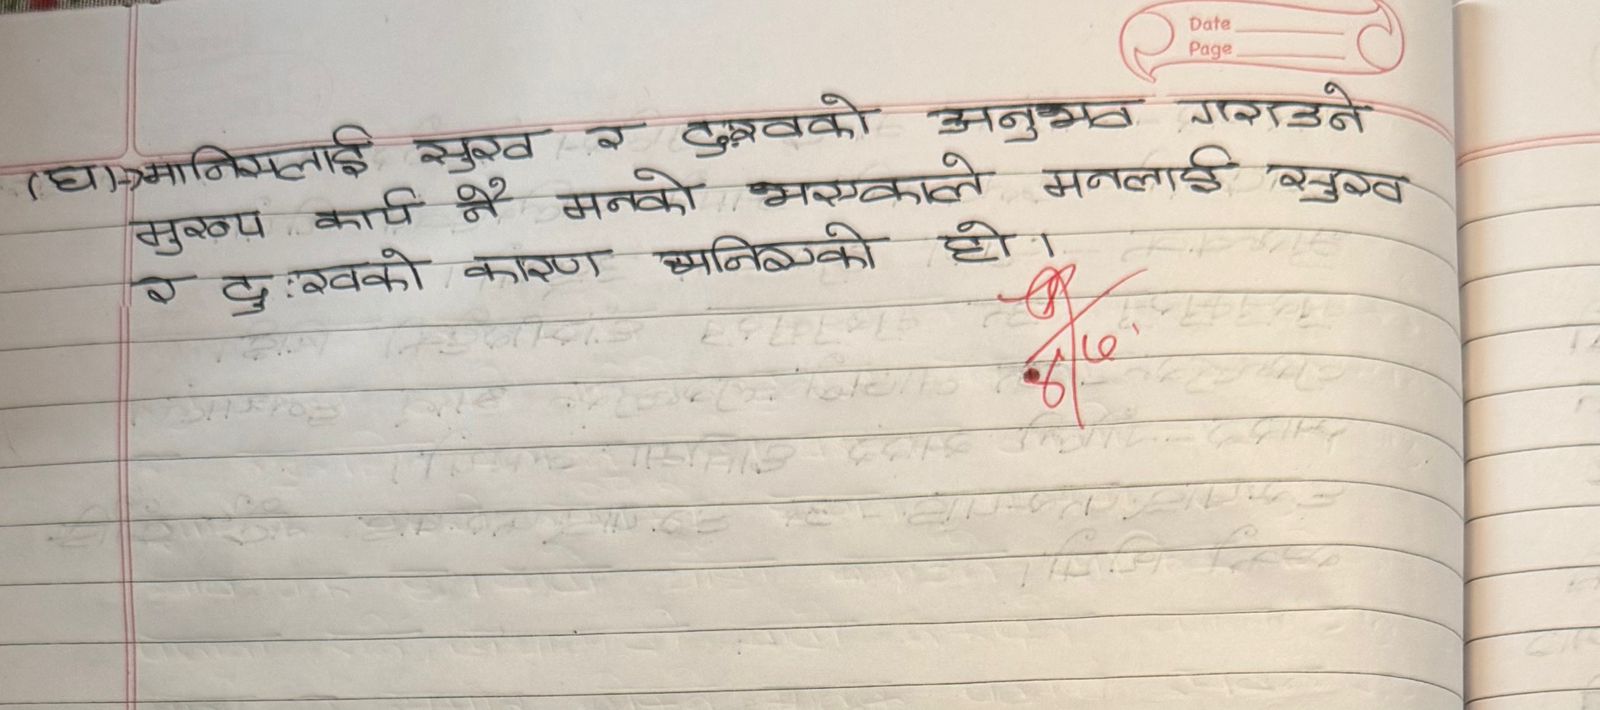 Date
Page
(घ)→मानिसलाई सुख र दुःखको अनुभव गराउने
मुख्य कार्य नै मनको भएकाले मनलाई सुख
र दुःखको कारण भनिएको हो।